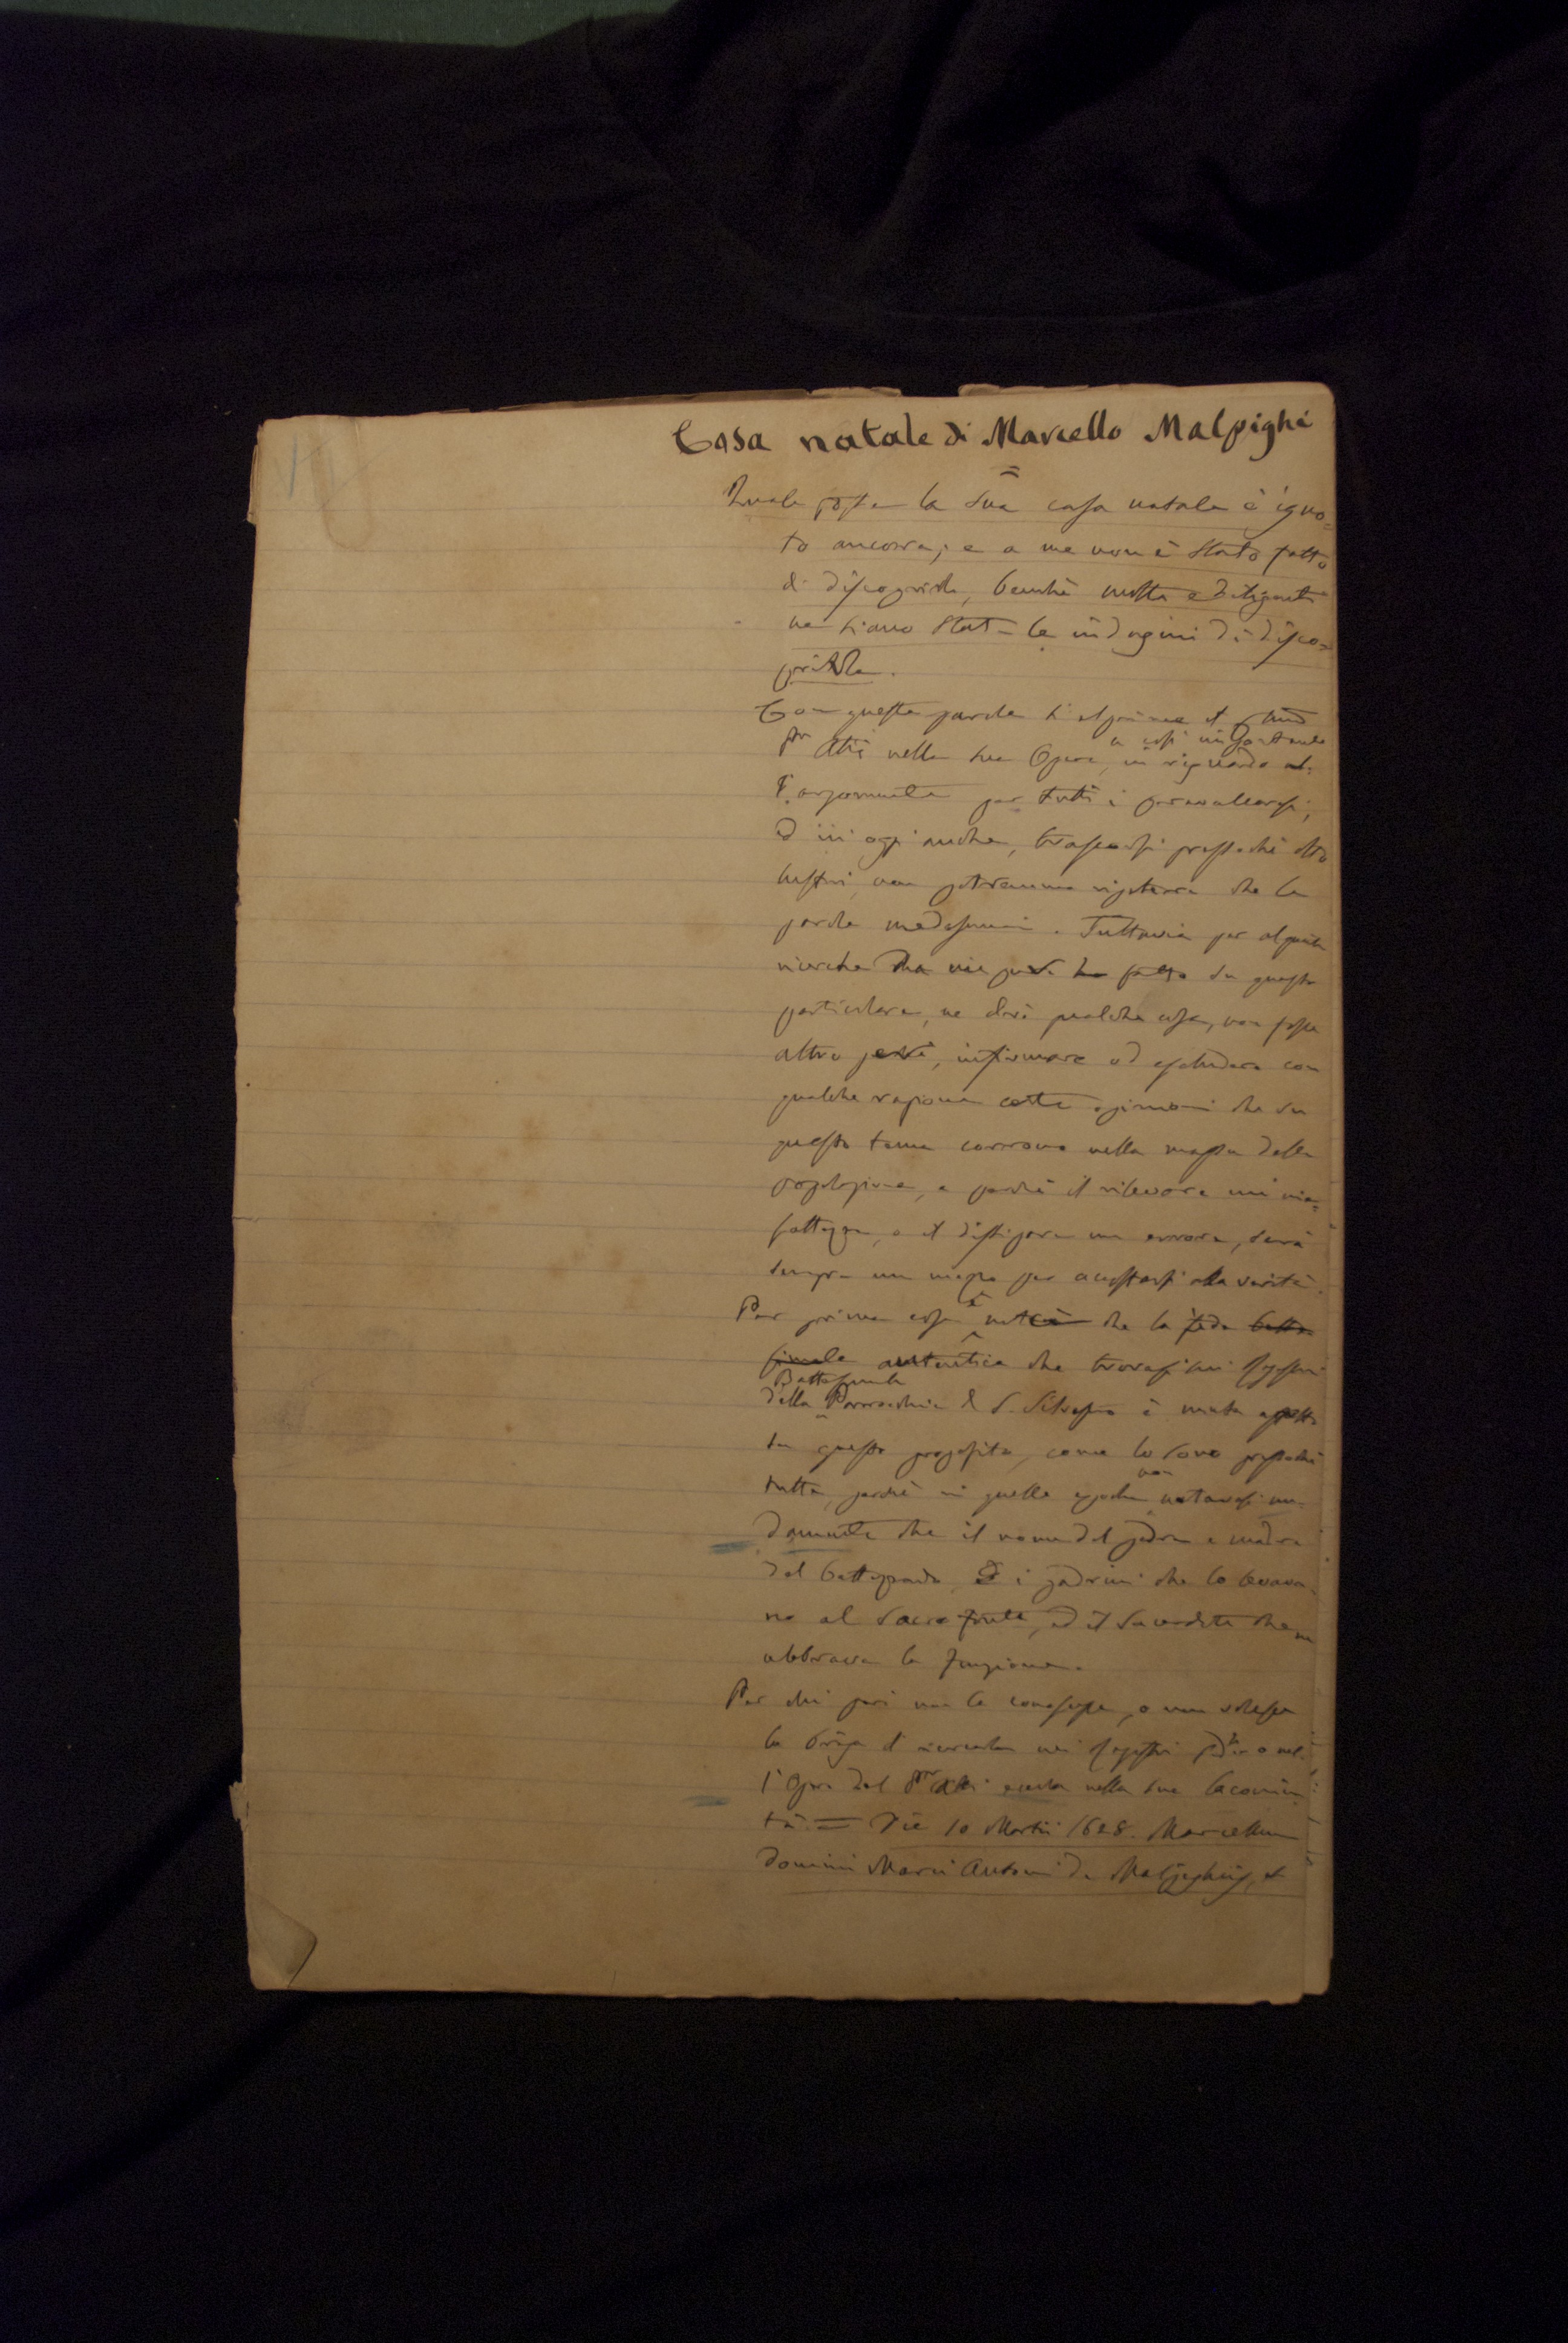 Casa natale di Marcello Malpighi
Quale fosse la sua casa natale è igno=
to ancora; e a me non è stato fatto
di discoprirla, benchè molte e diligenti
ne siano state le indagini di disco=
prirla.
Con queste parole si esprime il
Atti nella sua Opera, in riguardo al=
a così importante
l'argomento per tutti i crevalcoresi;
ed in oggi anche, trascorsi pressochè otto
lustri, non potremmo ripetere che le
parole medesime. Tuttavia per alquante
ricerche su questo
particolare, ne darò qualche cosa, non fosse
altro perchè, infirmare od escludere con
qualche ragione certe opinioni che su
questo tema corrono nella massa della
popolazione, e perchè il rilevare una ine=
sattezza, o il dissipare un errore, sarà
sempre un mezzo per accostarsi alla verità.
Per prima cosa che la fede
autentica che trovasi nei Registri
Battesimale
della Parrocchia di S. Silvestro è muta affatto
su questo proposito, come lo sono pressochè
tutte, perchè in quelle epoche non notavasi nu=
damente che il nome del padre e madre
del battezzando, i padrini che lo levava=
no al sacro fonte, ed il sacerdote che ne
celebrava la funzione.
Per chi poi non la conoscesse, o non volesse
la briga di ricercarla nei Registri o nel=
l'Opera del Atti eccola nella sua laconici=
tà = Die 10 Martii 1628. Marcellum
Domini Marci Antonii de Malpighiis, et